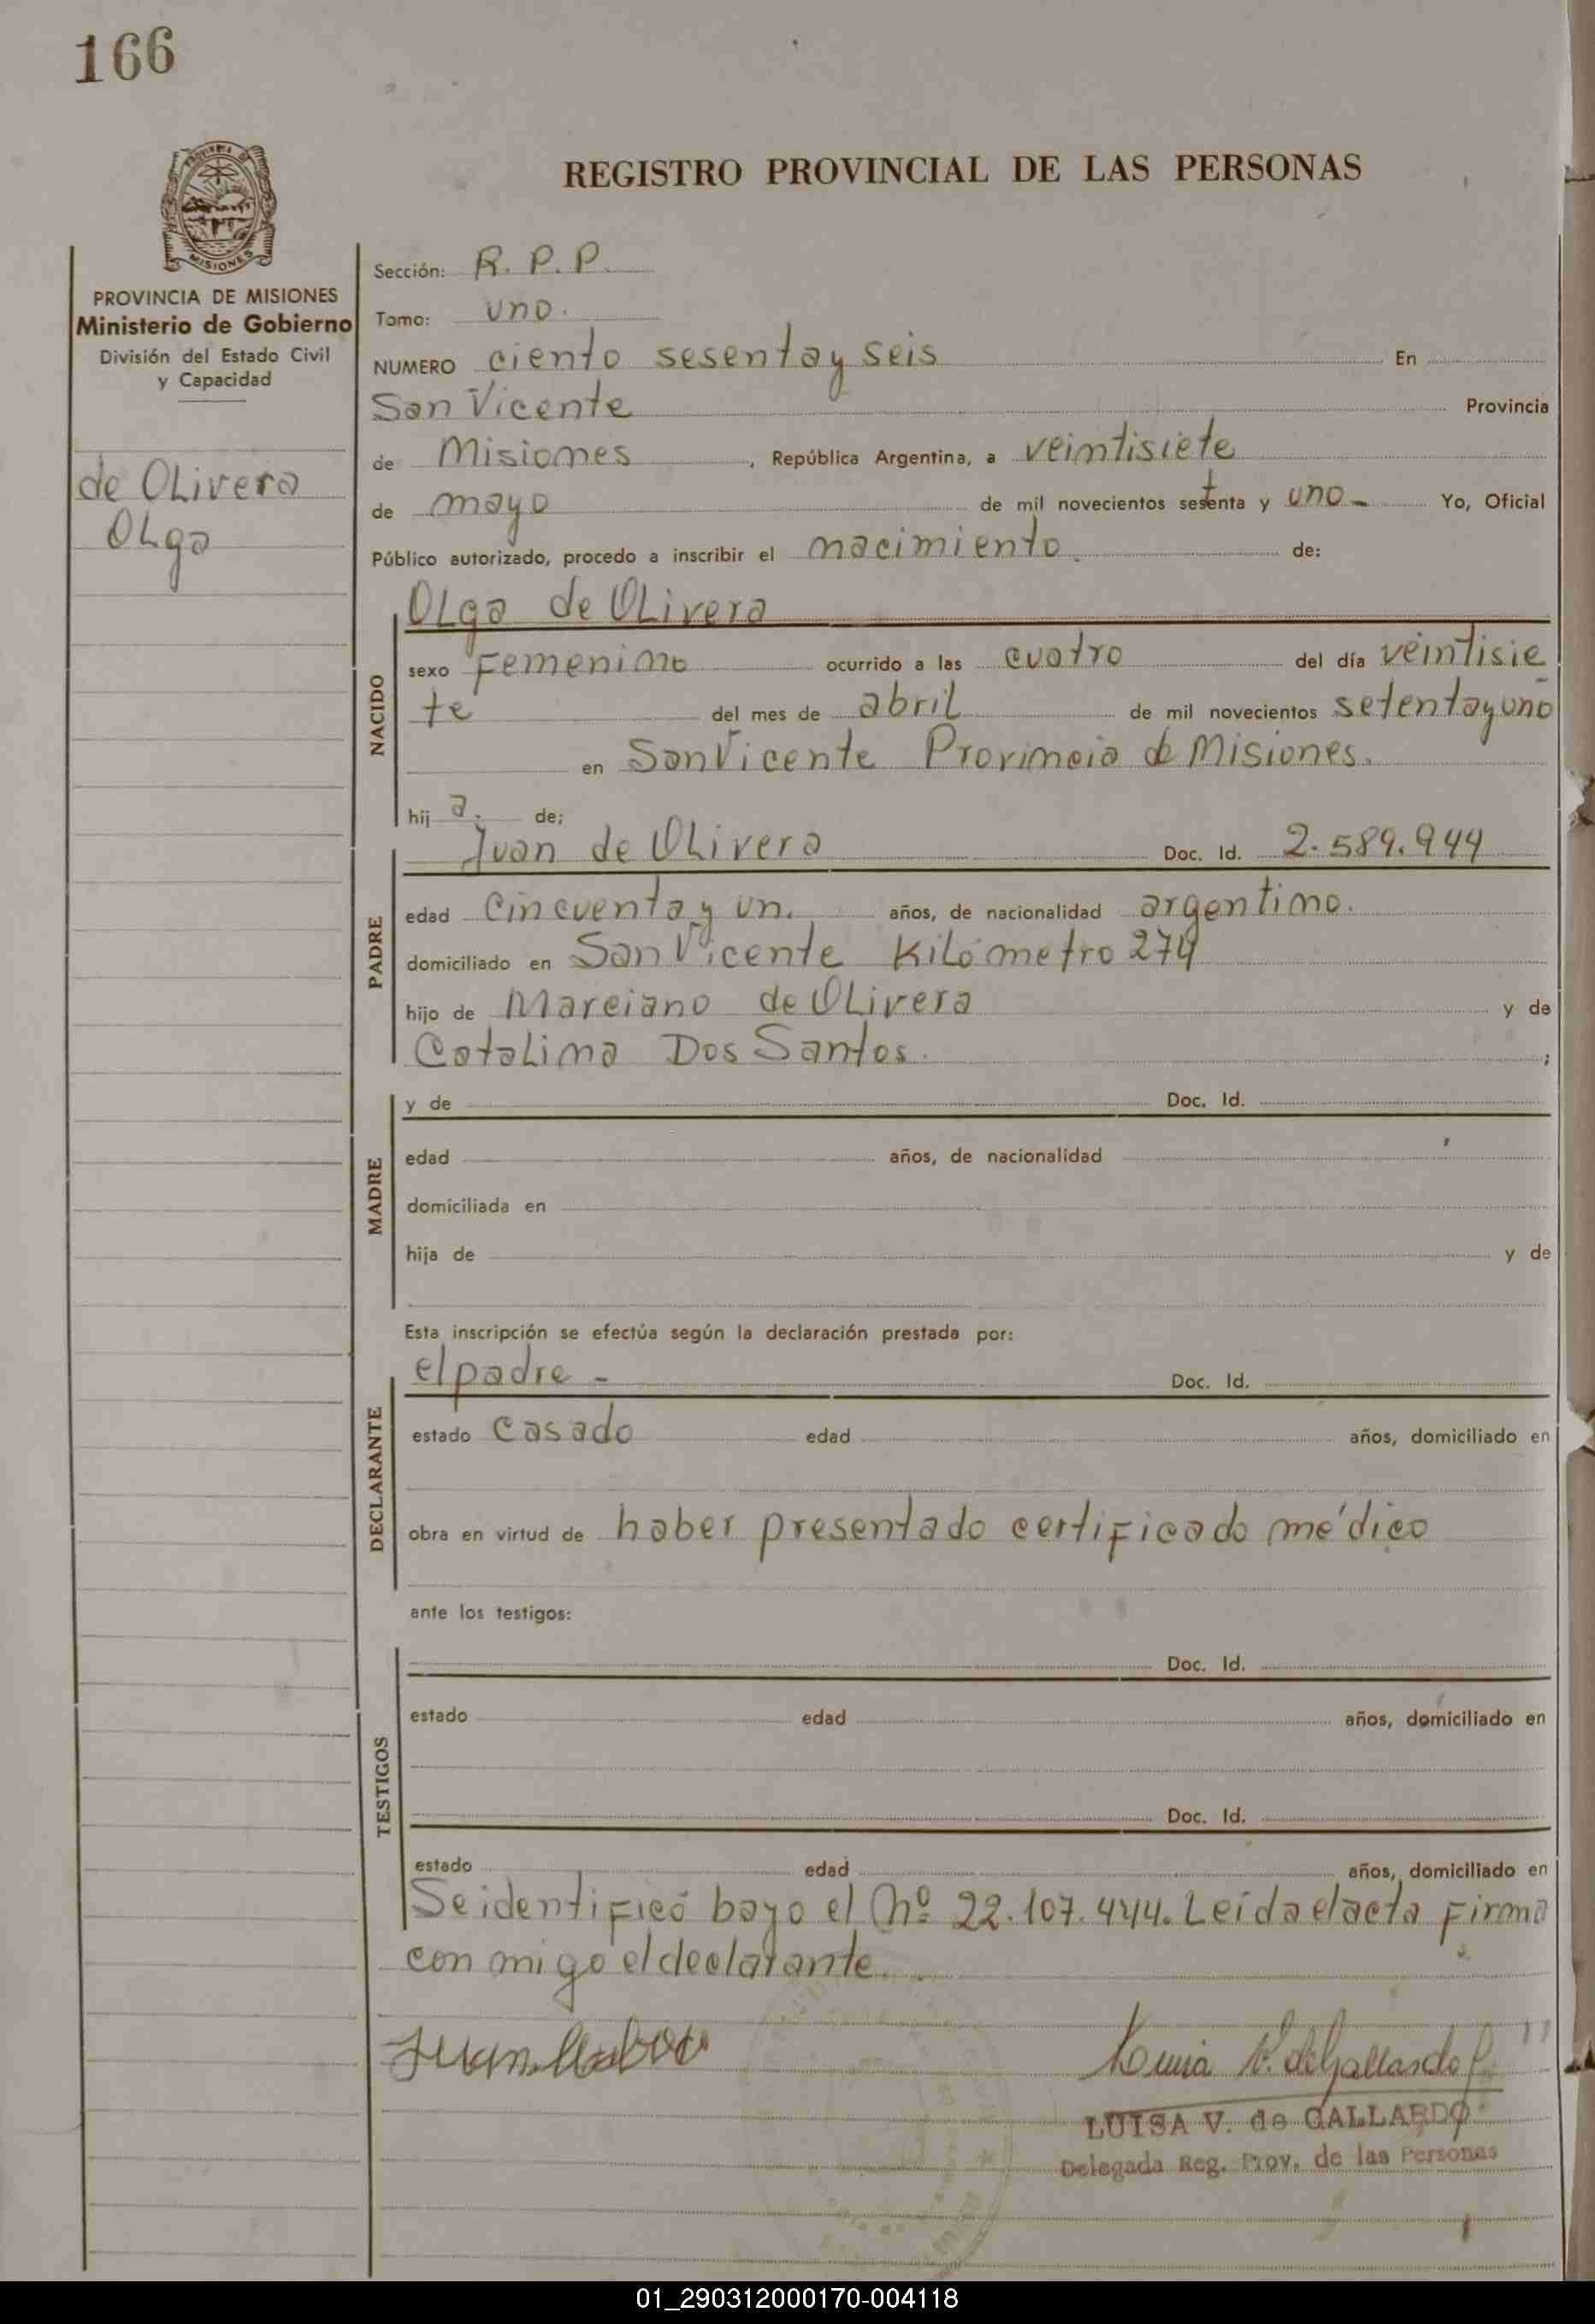 166
REGISTRO PROVINCIAL DE LAS PERSONAS
MISIONES
PROVINCIA DE MISIONES
Ministerio de Gobierno
División del Estado Civil
y Capacidad
de Olivera
Olga
Sección: R. P. P.
Tomo: uno.
NUMERO ciento sesenta y seis En
San Vicente Provincia
de Misiones, República Argentina, a veintisiete
de mayo de mil novecientos setenta y uno - Yo, Oficial
Público autorizado, procedo a inscribir el nacimiento de:
Olga de Olivera
NACIDO
sexo Femenino ocurrido a las cuatro del día veintisie
te del mes de abril de mil novecientos setenta y uno
en San Vicente Provincia de Misiones.
hij a. de;
Juan de Olivera Doc. Id. 2.589.944
PADRE
edad cincuenta y un. años, de nacionalidad argentino.
domiciliado en San Vicente Kilómetro 274
hijo de Marciano de Olivera y de
Catalina Dos Santos. ;
MADRE
y de Doc. Id.
edad años, de nacionalidad
domiciliada en
hija de y de
Esta inscripción se efectúa según la declaración prestada por:
el padre - Doc. Id.
DECLARANTE
estado casado edad años, domiciliado en
obra en virtud de haber presentado certificado médico
ante los testigos:
Doc. Id.
TESTIGOS
estado edad años, domiciliado en
Doc. Id.
estado edad años, domiciliado en
Se identificó bajo el Nº 22.107.444. Leída el acta firma
con migo el declarante.
Juan
Luisa V. de Gallardo
LUISA V. de GALLARDO
Delegada Reg. Prov. de las Personas
01_290312000170-004118